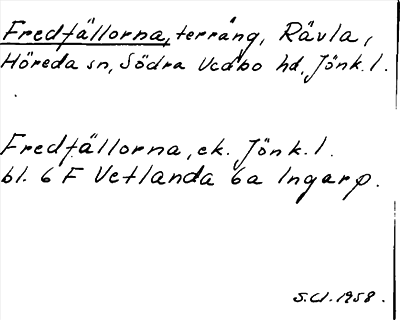 Fredfällorna, terräng, Rävla,
Höreda sn, Södra Vedbo hd, Jönk. l.
Fredfällorna, ek. Jönk. l.
bl. 6 F Vetlanda 6a Ingarp.
S.U. 1958.